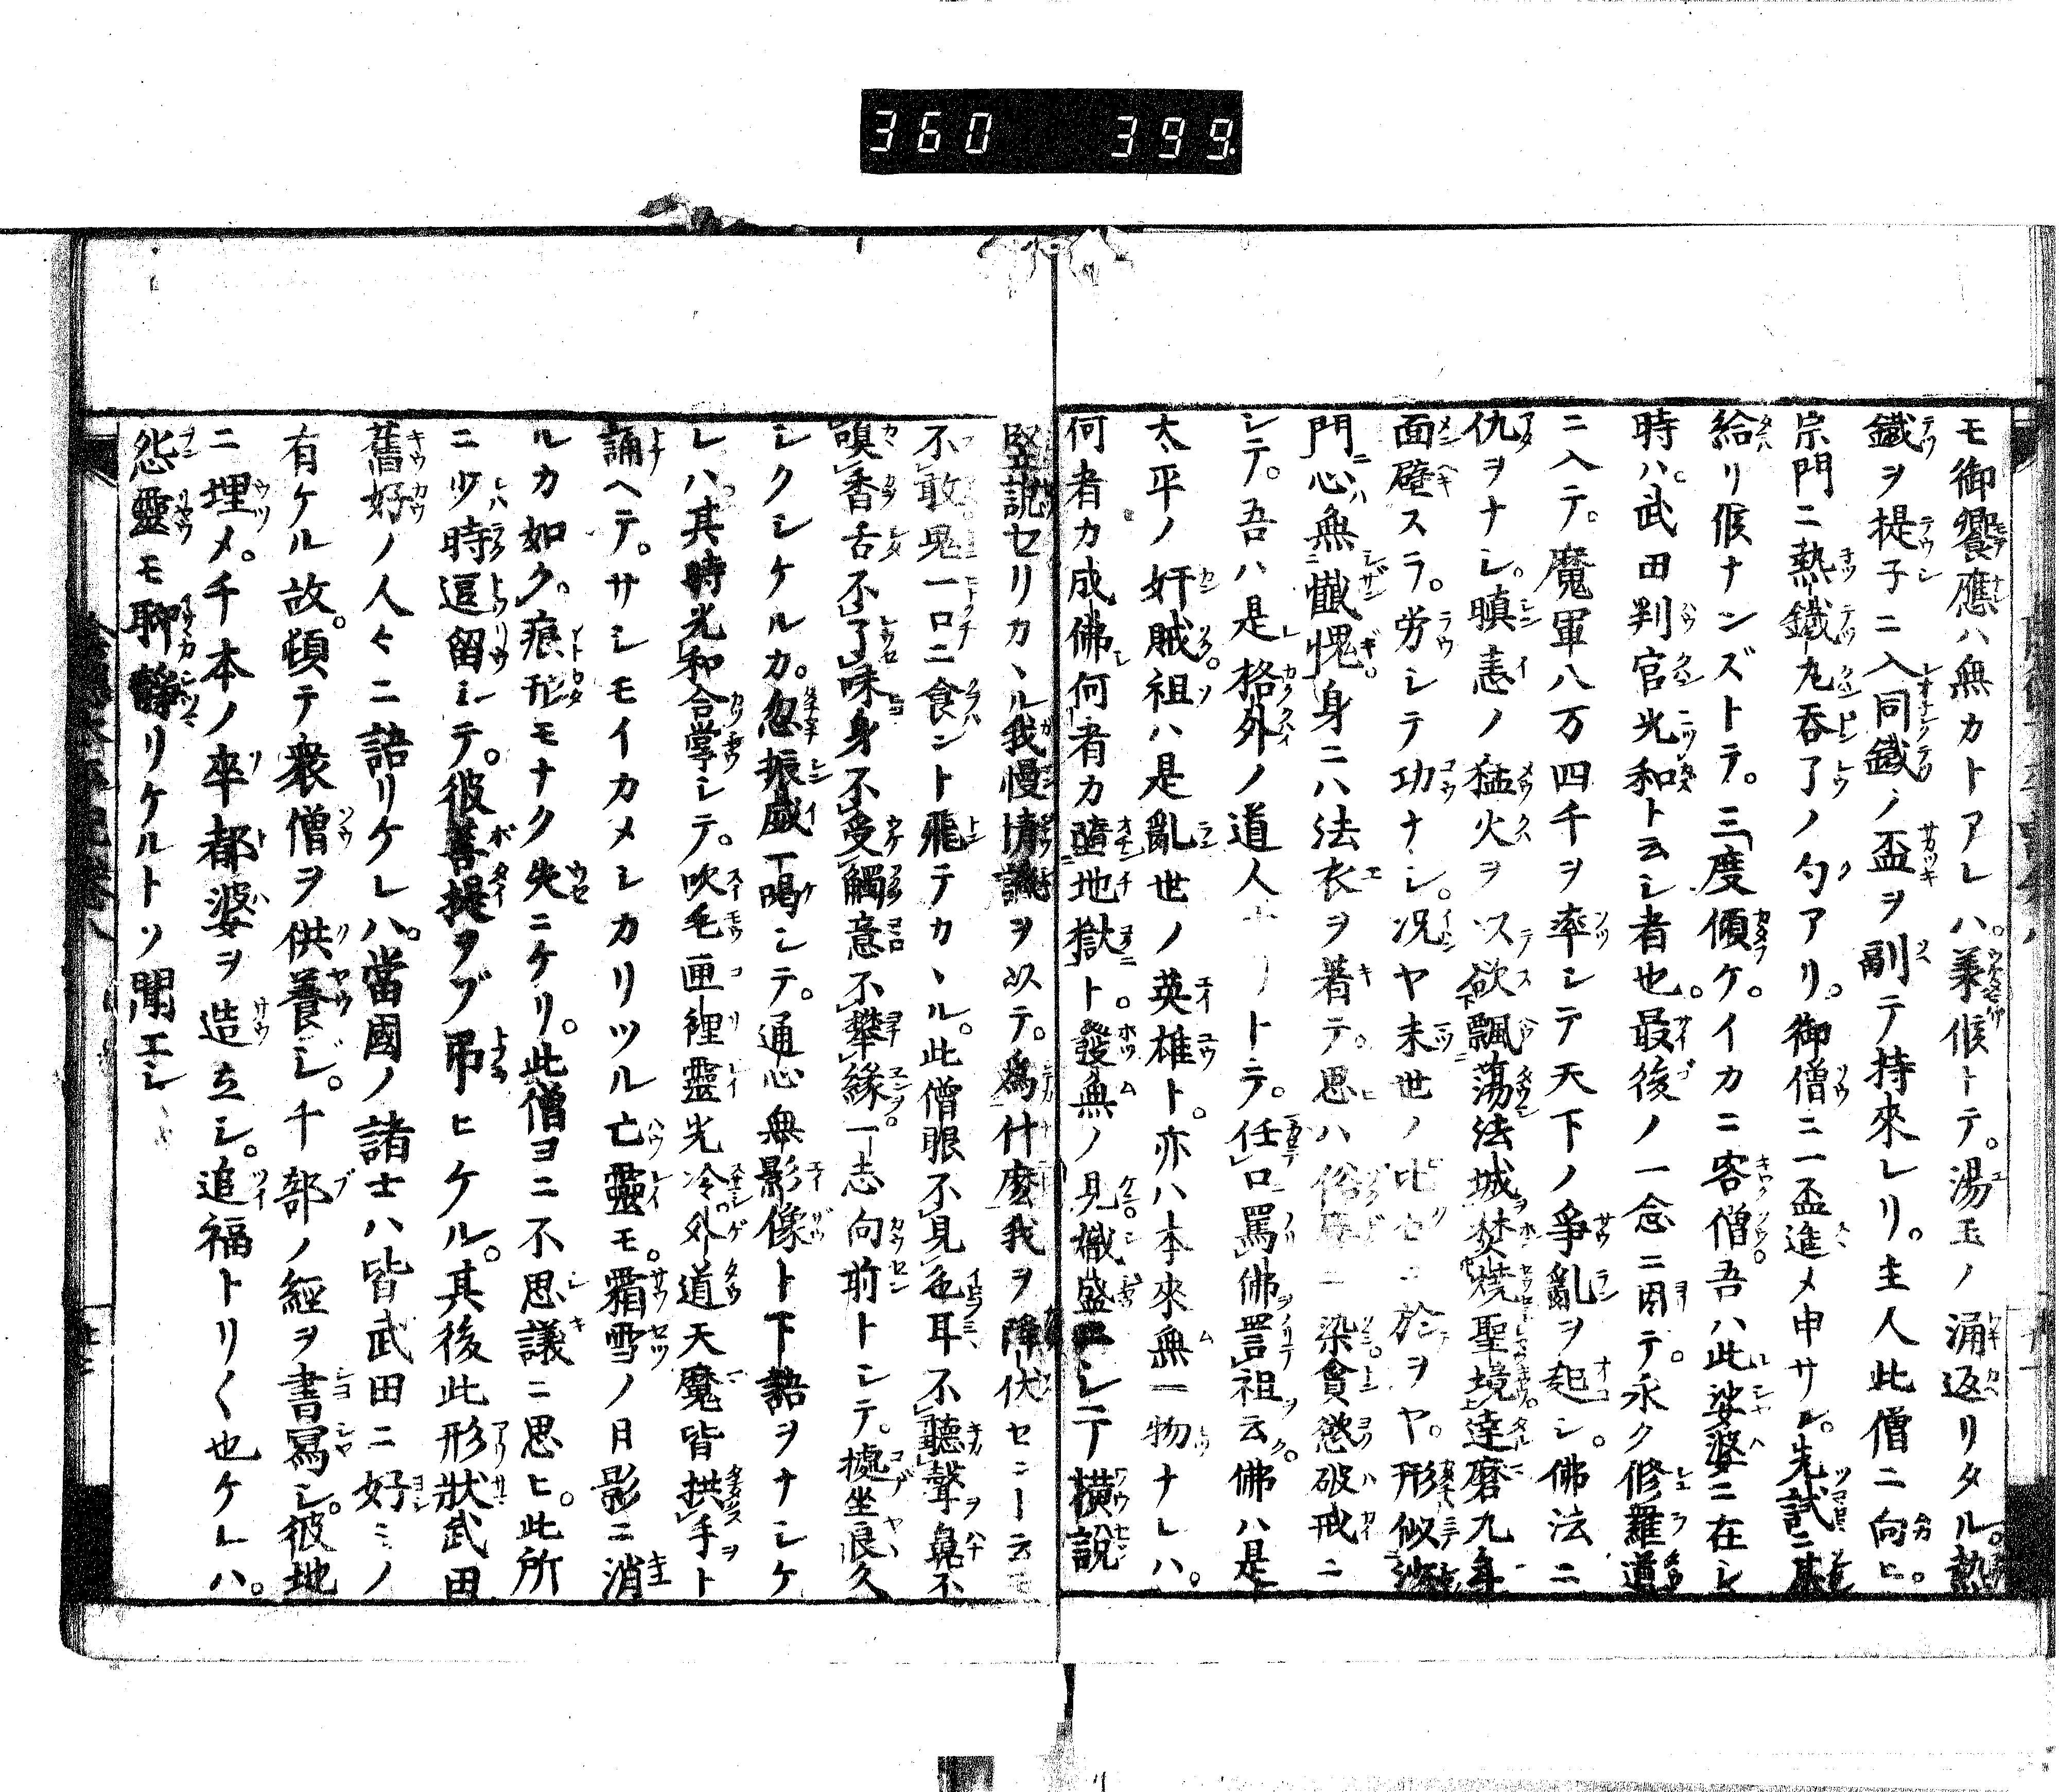 360 399
モ御饗應ハ無カトアレハ。羕候トテ。湯玉ノ涌返リタル。熱
鐵ヲ提子ニ入同鐵ノ盃ヲ副テ持來レリ。主人此僧ニ向ヒ。
宗門ニ熱鐵丸呑了ノ勺アリ。御僧ニ一盃進メ申サン。先試ニ
給リ候ナンズトテ。三度傾ケ。イカニ客僧吾ハ此娑婆ニ在シ
時ハ。武田判官光和ト云シ者也。最後ノ一念ニ因テ。永ク修羅道
ニ入テ。魔軍八万四千ヲ率シテ天下ノ爭亂ヲ起シ。佛法ニ
仇ヲナシ。瞋恚ノ猛火ヲ以欲飄蕩法城焚燒聖境達磨九年
面壁スラ。労シテ功ナシ。況ヤ末世ノ比丘ニ於ヲヤ。形似沙
門心無慚愧。身ニハ法衣ヲ著テ。思ハ俗塵ニ染貪慾破戒ニ
シテ。吾ハ是格外ノ道人ナリトテ。任口罵佛詈祖云ク。佛ハ是
太平ノ奸賊。祖ハ是亂世ノ英雄ト。亦ハ本來無一物ナレハ。
何者カ成佛何者カ墮地獄ト。發無ノ見熾盛ニシテ橫說
竪說セリカヽル我慢情識ヲ以テ。爲什麽我ヲ降伏セント云モ
不敢。鬼一口ニ食ント飛テカヽル。此僧眼不見色耳不聽聲鼻不
嗅香舌不了味身不受觸意不攀緣一志向前トシテ。據坐良久
シクシケルカ。忽振威一喝シテ。通心無影像ト下語ヲナシケ
レハ其時光和合掌シテ。吹毛匣裡靈光冷。外道天魔皆拱手ト
誦ヘテ。サシモイカメシカリツル亡靈モ。霜雪ノ月影ニ消
ルカ如ク。痕形モナク失ニケリ。此僧ヨニ不思議ニ思ヒ。此所
ニ少時逗留シテ。彼菩提ヲブ吊ヒケル。其後此形狀武田
舊好ノ人々ニ語リケレハ。當國ノ諸士ハ皆武田ニ好ミノ
有ケル故。頓テ衆僧ヲ供養シ。千部ノ經ヲ書寫シ。彼地
ニ埋メ。千本ノ卒都婆ヲ造立シ。追福トリ〱也ケレハ。
怨靈モ聊靜リケルトソ聞エシ